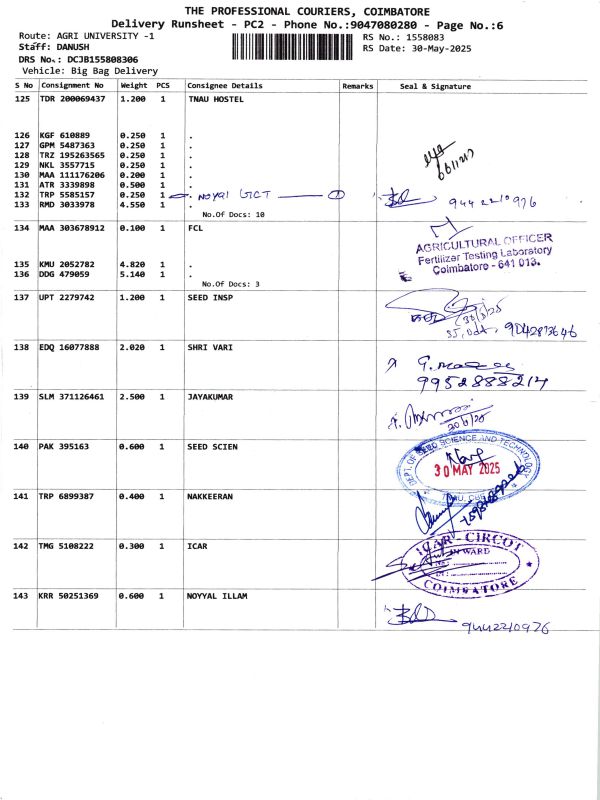 THE PROFESSIONAL COURIERS, COIMBATORE
Delivery Runsheet - PC2 - Phone No.:9047080280 - Page No.:6
Route: AGRI UNIVERSITY -1
RS No.: 1558083
Staff: DANUSH
RS Date: 30-May-2025
DRS No.: DCJB155808306
Vehicle: Big Bag Delivery
S No Consignment No Weight PCS Consignee Details Remarks Seal & Signature
125 TDR 200069437 1.200 1 TNAU HOSTEL
126 KGF 610889 0.250 1 .
127 GPM 5487363 0.250 1 .
128 TRZ 195263565 0.250 1 .
129 NKL 3557715 0.250 1 .
130 MAA 111176206 0.200 1 .
131 ATR 3339898 0.500 1 .
132 TRP 5585157 0.250 1 . NOYAL GCT 1
133 RMD 3033978 4.550 1 . 9442210976
No.Of Docs: 10
134 MAA 303678912 0.100 1 FCL
AGRICULTURAL OFFICER
Fertilizer Testing Laboratory
Coimbatore - 641 013.
135 KMU 2052782 4.820 1 .
136 DDG 479059 5.140 1 .
No.Of Docs: 3
137 UPT 2279742 1.200 1 SEED INSP
138 EDQ 16077888 2.020 1 SHRI VARI
9952888214
139 SLM 371126461 2.500 1 JAYAKUMAR
140 PAK 395163 0.600 1 SEED SCIEN
DEPT. OF SEED SCIENCE AND TECHNOLOGY
30 MAY 2025
141 TRP 6899387 0.400 1 NAKKEERAN
142 TMG 5108222 0.300 1 ICAR
ICAR - CIRCOT
INWARD
COIMBATORE
143 KRR 50251369 0.600 1 NOYYAL ILLAM
9442210976